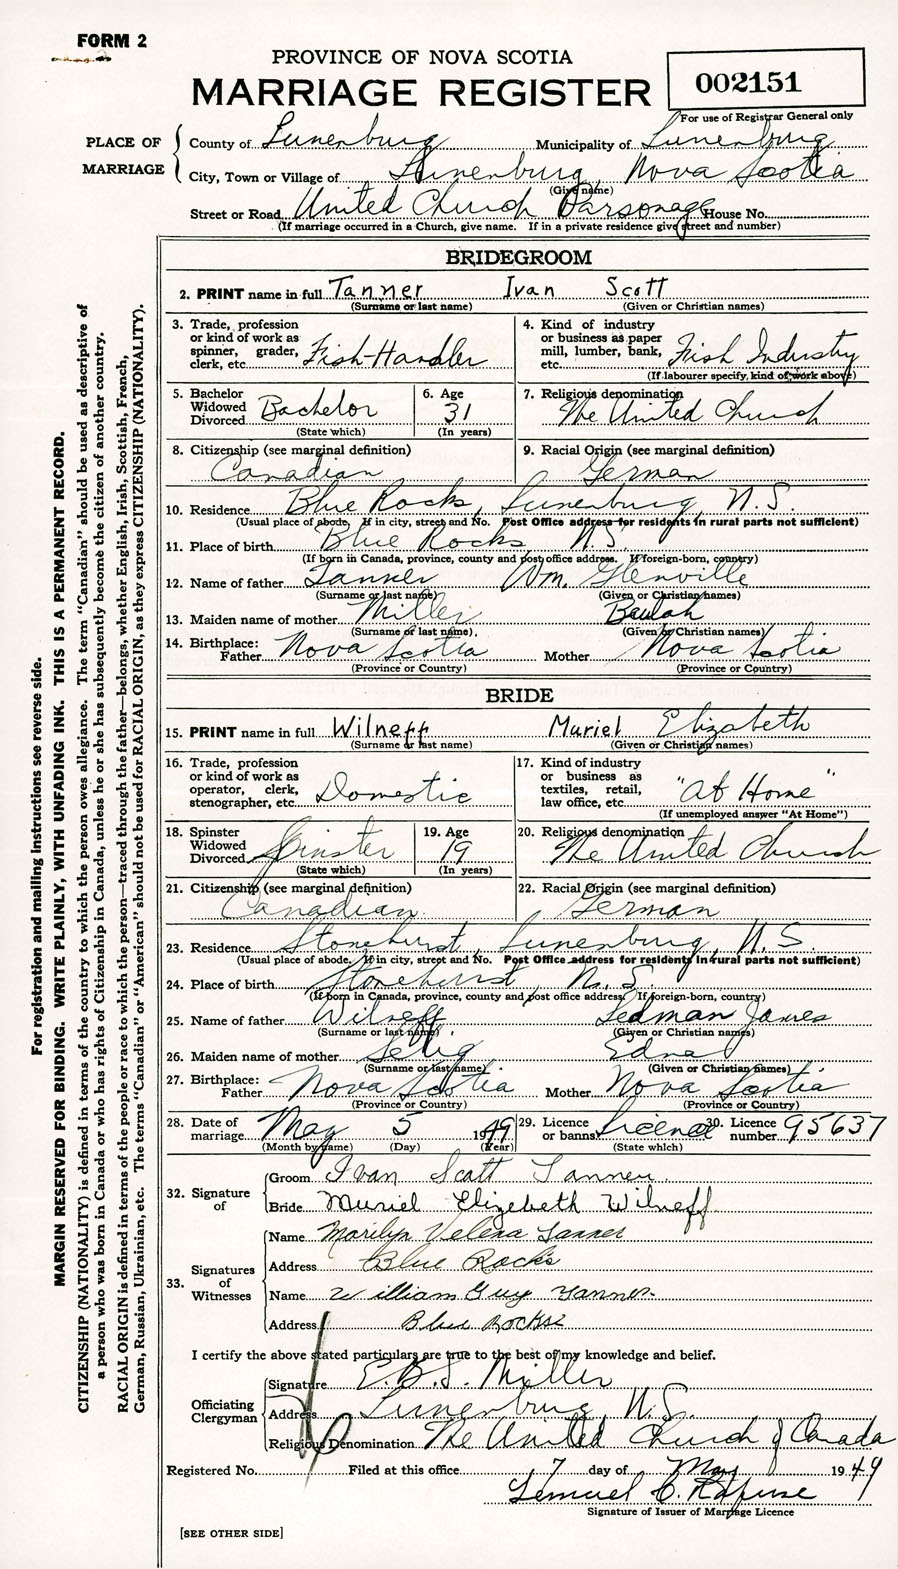 FORM 2
PROVINCE OF NOVA SCOTIA
MARRIAGE REGISTER
002151
For use of Registrar General only
PLACE OF MARRIAGE
County of Lunenburg Municipality of Lunenburg
City, Town or Village of Lunenburg, Nova Scotia
(Give name)
Street or Road United Church Parsonage House No.
(If marriage occurred in a Church, give name. If in a private residence give street and number)
BRIDEGROOM
2. PRINT name in full Tanner Ivan Scott
(Surname or last name) (Given or Christian names)
3. Trade, profession or kind of work as spinner, grader, clerk, etc. Fish-Handler
4. Kind of industry or business as paper mill, lumber, bank, etc. Fish Industry
(If labourer specify, kind of work above)
5. Bachelor Widowed Divorced Bachelor
(State which)
6. Age 31
(In years)
7. Religious denomination
The United Church
8. Citizenship (see marginal definition)
Canadian
9. Racial Origin (see marginal definition)
German
10. Residence Blue Rocks, Lunenburg, N.S.
(Usual place of abode, If in city, street and No. Post Office address for residents in rural parts not sufficient)
11. Place of birth Blue Rocks N.S.
(If born in Canada, province, county and post office address. If foreign-born, country)
12. Name of father Tanner Wm. Glenville
(Surname or last name) (Given or Christian names)
13. Maiden name of mother Miller Beulah
(Surname or last name), (Given or Christian names)
14. Birthplace: Father Nova Scotia Mother Nova Scotia
(Province or Country) (Province or Country)
BRIDE
15. PRINT name in full Wilneff Muriel Elizabeth
(Surname or last name) (Given or Christian names)
16. Trade, profession or kind of work as operator, clerk, stenographer, etc. Domestic
17. Kind of industry or business as textiles, retail, law office, etc. "At Home"
(If unemployed answer "At Home")
18. Spinster Widowed Divorced Spinster
(State which)
19. Age 19
(In years)
20. Religious denomination
The United Church
21. Citizenship (see marginal definition)
Canadian
22. Racial Origin (see marginal definition)
German
23. Residence Stonehurst, Lunenburg, N.S.
(Usual place of abode. If in city, street and No. Post Office address for residents in rural parts not sufficient)
24. Place of birth Stonehurst, N.S.
(If born in Canada, province, county and post office address. If foreign-born, country)
25. Name of father Wilneff Sedman James
(Surname or last name) (Given or Christian names)
26. Maiden name of mother Selig Edna
(Surname or last name) (Given or Christian names)
27. Birthplace: Father Nova Scotia Mother Nova Scotia
(Province or Country) (Province or Country)
28. Date of marriage May 5 1949
(Month by name) (Day) (Year)
29. Licence or banns Licence
(State which)
30. Licence number 95637
32. Signature of
Groom Ivan Scott Tanner
Bride Muriel Elizebeth Wilneff
33. Signatures of Witnesses
Name Marilyn Velena Tanner
Address Blue Rocks
Name William Guy Tanner
Address Blue Rocks
I certify the above stated particulars are true to the best of my knowledge and belief.
Officiating Clergyman
Signature E.B.S. Miller
Address Lunenburg, N.S.
Religious Denomination The United Church of Canada
Registered No. Filed at this office 7 day of May 1949
Lemuel C.
Signature of Issuer of Marriage Licence
[SEE OTHER SIDE]
For registration and mailing instructions see reverse side.
MARGIN RESERVED FOR BINDING. WRITE PLAINLY, WITH UNFADING INK. THIS IS A PERMANENT RECORD.
CITIZENSHIP (NATIONALITY) is defined in terms of the country to which the person owes allegiance. The term "Canadian" should be used as descriptive of
a person who was born in Canada or who has rights of Citizenship in Canada, unless he or she has subsequently become the citizen of another country.
RACIAL ORIGIN is defined in terms of the people or race to which the person—traced through the father—belongs, whether English, Irish, Scottish, French,
German, Russian, Ukrainian, etc. The terms "Canadian" or "American" should not be used for RACIAL ORIGIN, as they express CITIZENSHIP (NATIONALITY).